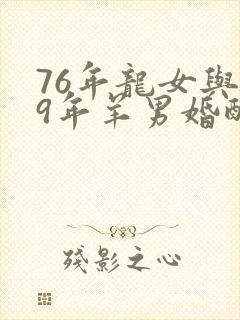 76年龍女與
9年羊男婚配
殘影之心